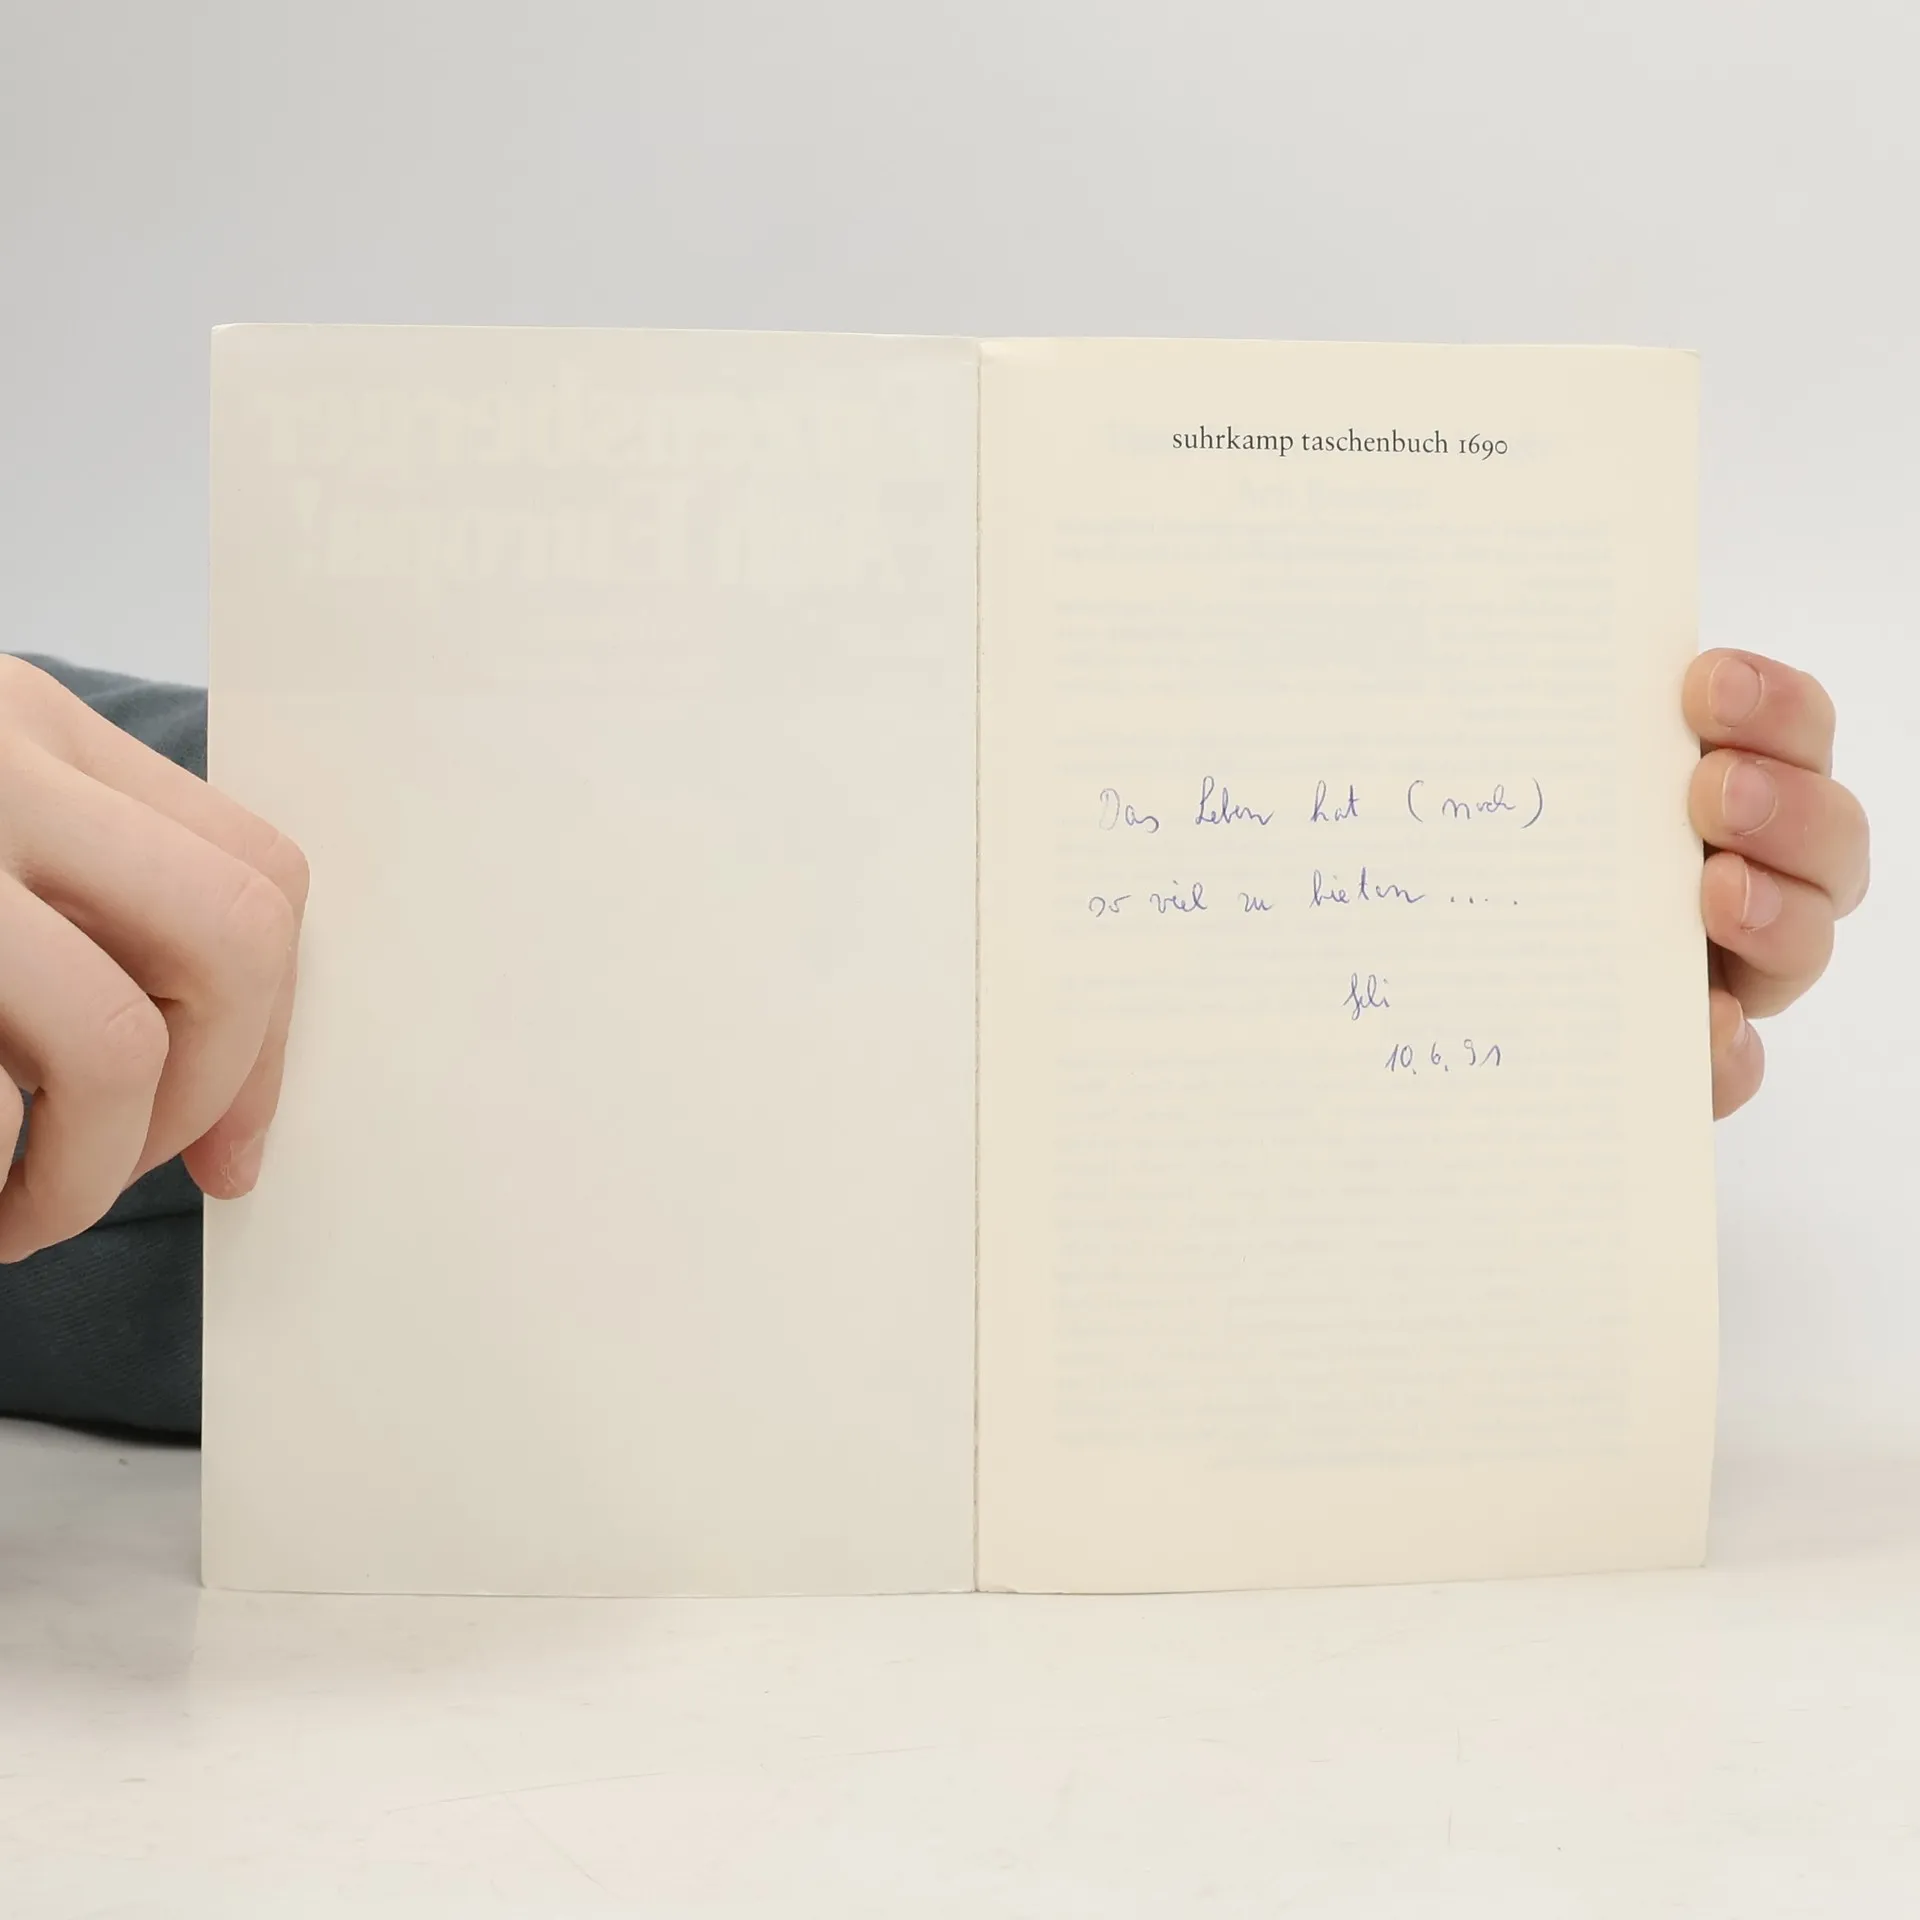 suhrkamp taschenbuch 1690
Das Leben hat (noch)
so viel zu bieten ....
Feli
10.6.91